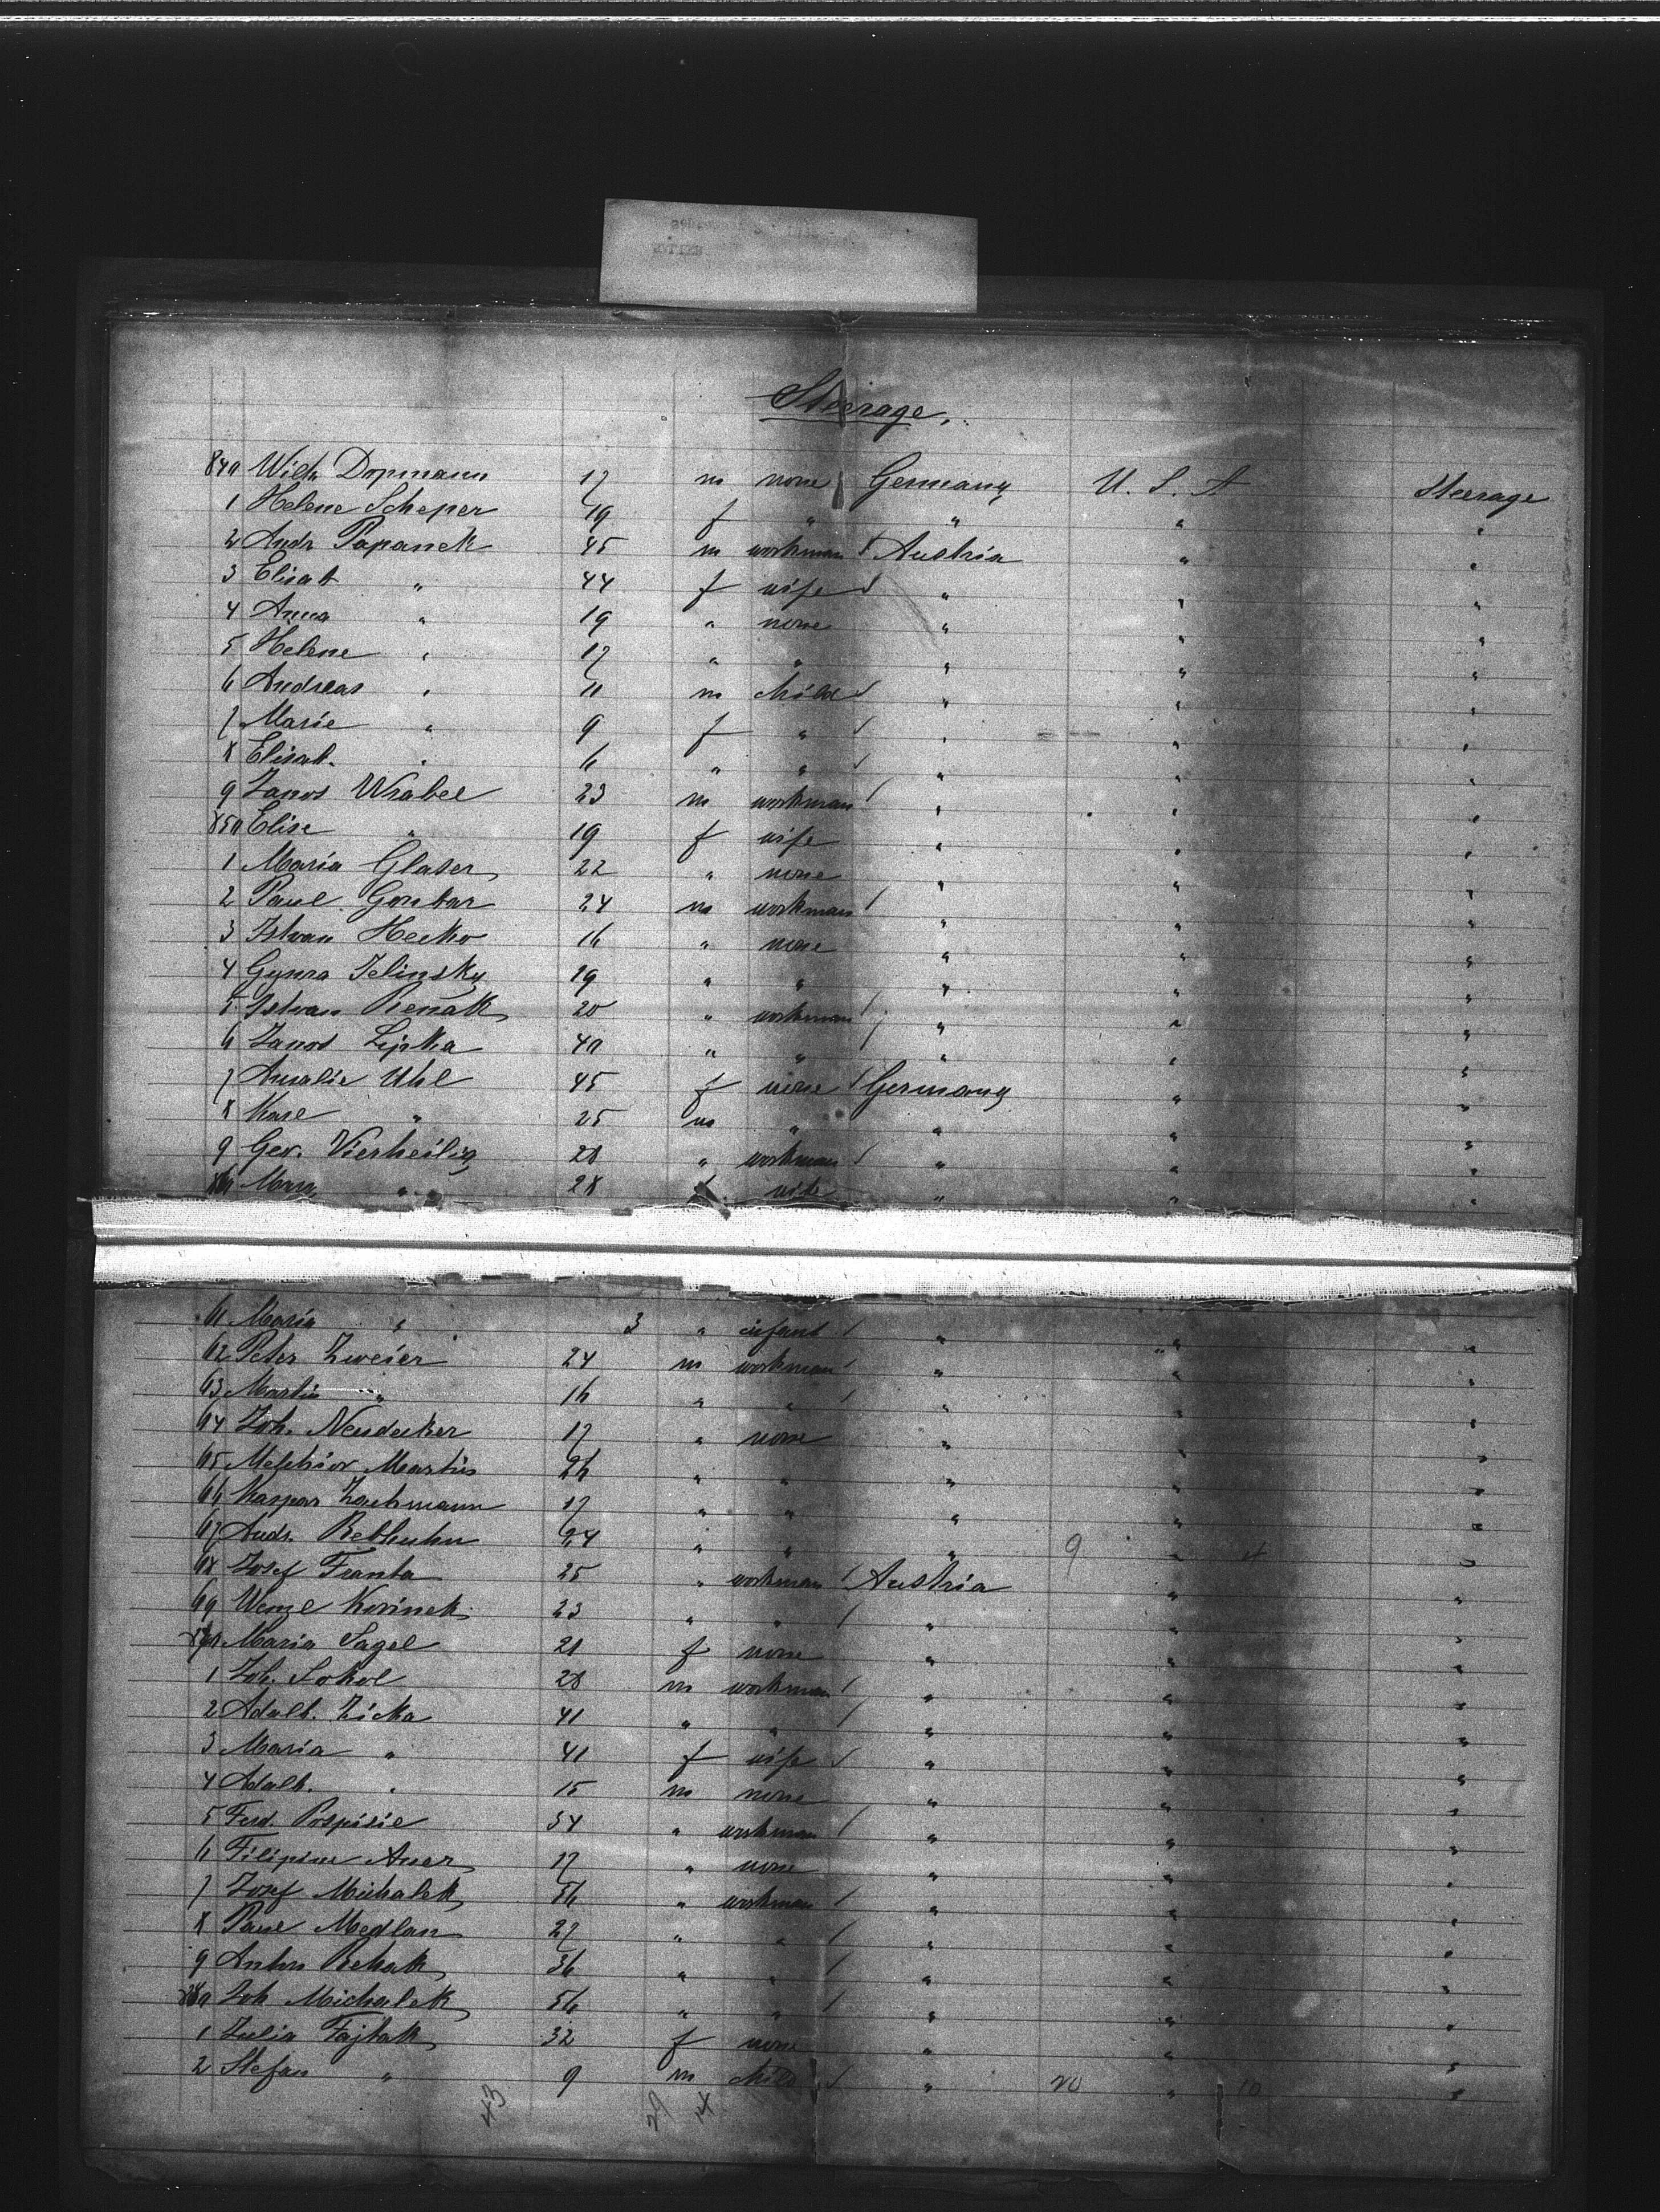 Steerage.
840 Wilh. Dopmann 17 m none Germany U. S. A Steerage
1 Helene Scheper 19 f " " " "
2 Andr. Papanek 45 m workman Austria " "
3 Elisab " 44 f wife " " "
4 Anna " 19 " none " " "
5 Helene " 17 " " " " "
6 Andreas " 11 m child " " "
7 Marie " 9 f " " " "
8 Elisab. " 6 " " " " "
9 Janos Wrabel 23 m workman " " "
850 Elise " 19 f wife " " "
1 Maria Glaser 22 " none " " "
2 Paul Gombar 24 m workman " " "
3 Istvan Hecko 16 " none " " "
4 Gyura Jelinsky 19 " " " " "
5 Istvan Renak 20 " workman " " "
6 Janos Lipka 40 " " " " "
7 Amalie Uhl 45 f none Germany " "
8 Karl " 25 m " " " "
9 Geo. Vierheilig 28 " workman " " "
860 Marg. " 28 f wife " " "
61 Maria " 3 " infant " " "
62 Peter Zweier 24 m workman " " "
63 Martin " 16 " " " " "
64 Joh. Neudecker 17 " none " " "
65 Melchior Martin 26 " " " " "
66 Kaspar Zachmann 17 " " " " "
67 Andr. Rebhuhn 24 " " " 9 " 4 "
68 Josef Franta 25 " workman Austria " "
69 Wenzl Korinek 23 " " " " "
870 Maria Sagel 21 f none " " "
1 Joh. Sokol 28 m workman " " "
2 Adalb. Zicka 41 " " " " "
3 Maria " 41 f wife " " "
4 Adalb. " 15 m none " " "
5 Ferd. Pospisil 54 " workman " " "
6 Filipine Auer 17 " none " " "
7 Josef Michalek 56 " workman " " "
8 Paul Medlan 27 " " " " "
9 Anton Rehak 36 " " " " "
880 Joh Michalek 56 " " " " "
1 Julia Fajtak 32 f none " " "
2 Stefan " 9 m child " 20 " 10 "
43 29 14